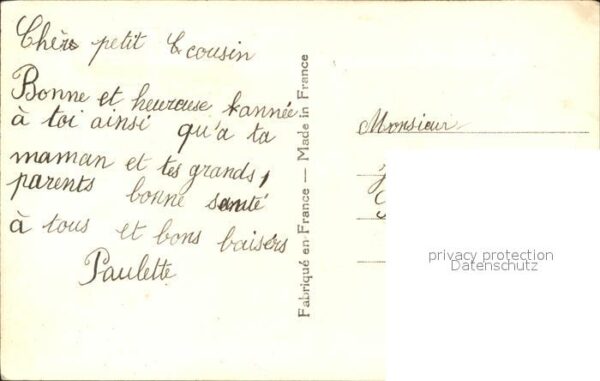 Chère petit cousin
Bonne et heureuse année
à toi ainsi qu'a ta
maman et tes grands,
parents bonne santé
à tous et bons baisers
Paulette
Fabriqué en France — Made in France
Monsieur
privacy protection
Datenschutz